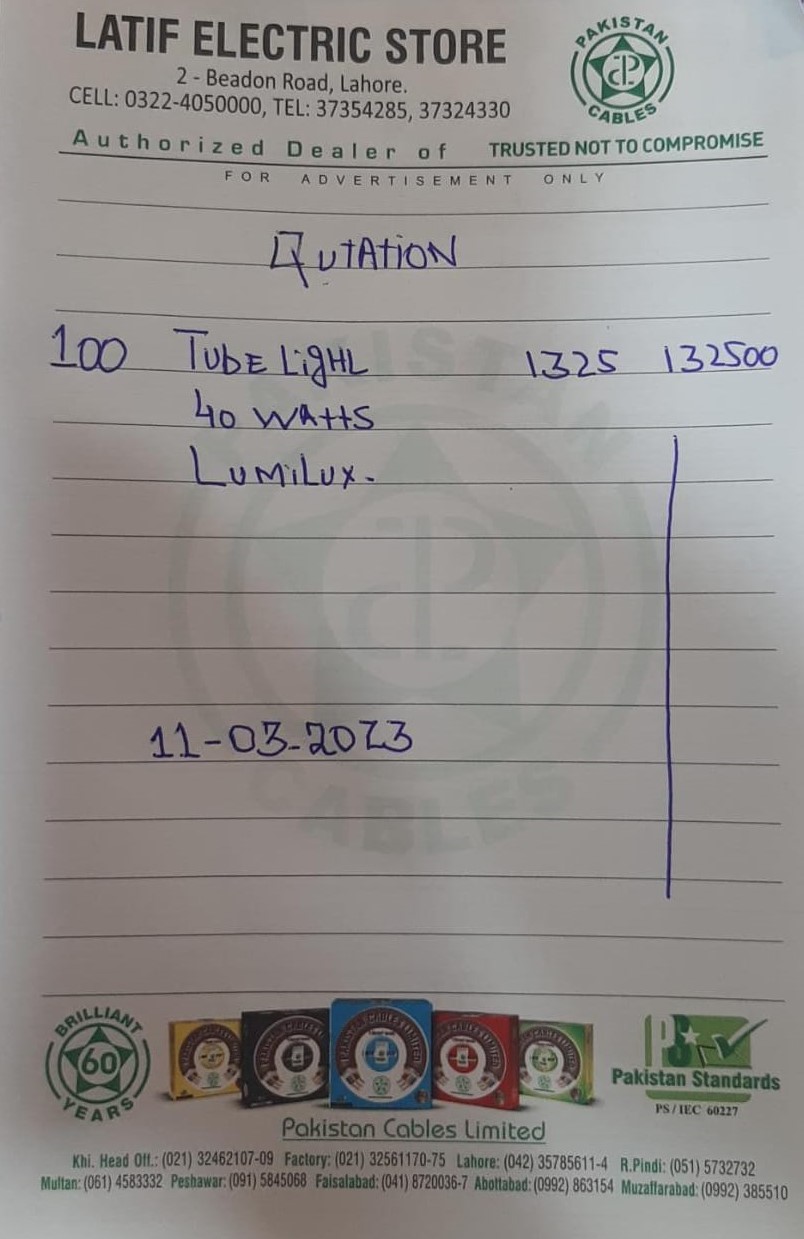 LATIF ELECTRIC STORE
2 - Beadon Road, Lahore.
CELL: 0322-4050000, TEL: 37354285, 37324330
PAKISTAN
CABLES
Authorized Dealer of TRUSTED NOT TO COMPROMISE
FOR ADVERTISEMENT ONLY
QUTATION
100 TUBE LIGHL 1325 132500
40 WATTS
LUMILUX.
PAKISTAN
CABLES
11-03-2023
BRILLIANT
60
YEARS
PS
Pakistan Standards
PS / IEC 60227
Pakistan Cables Limited
Khi. Head Off.: (021) 32462107-09 Factory: (021) 32561170-75 Lahore: (042) 35785611-4 R.Pindi: (051) 5732732
Multan: (061) 4583332 Peshawar: (091) 5845068 Faisalabad: (041) 8720036-7 Abottabad: (0992) 863154 Muzaffarabad: (0992) 385510